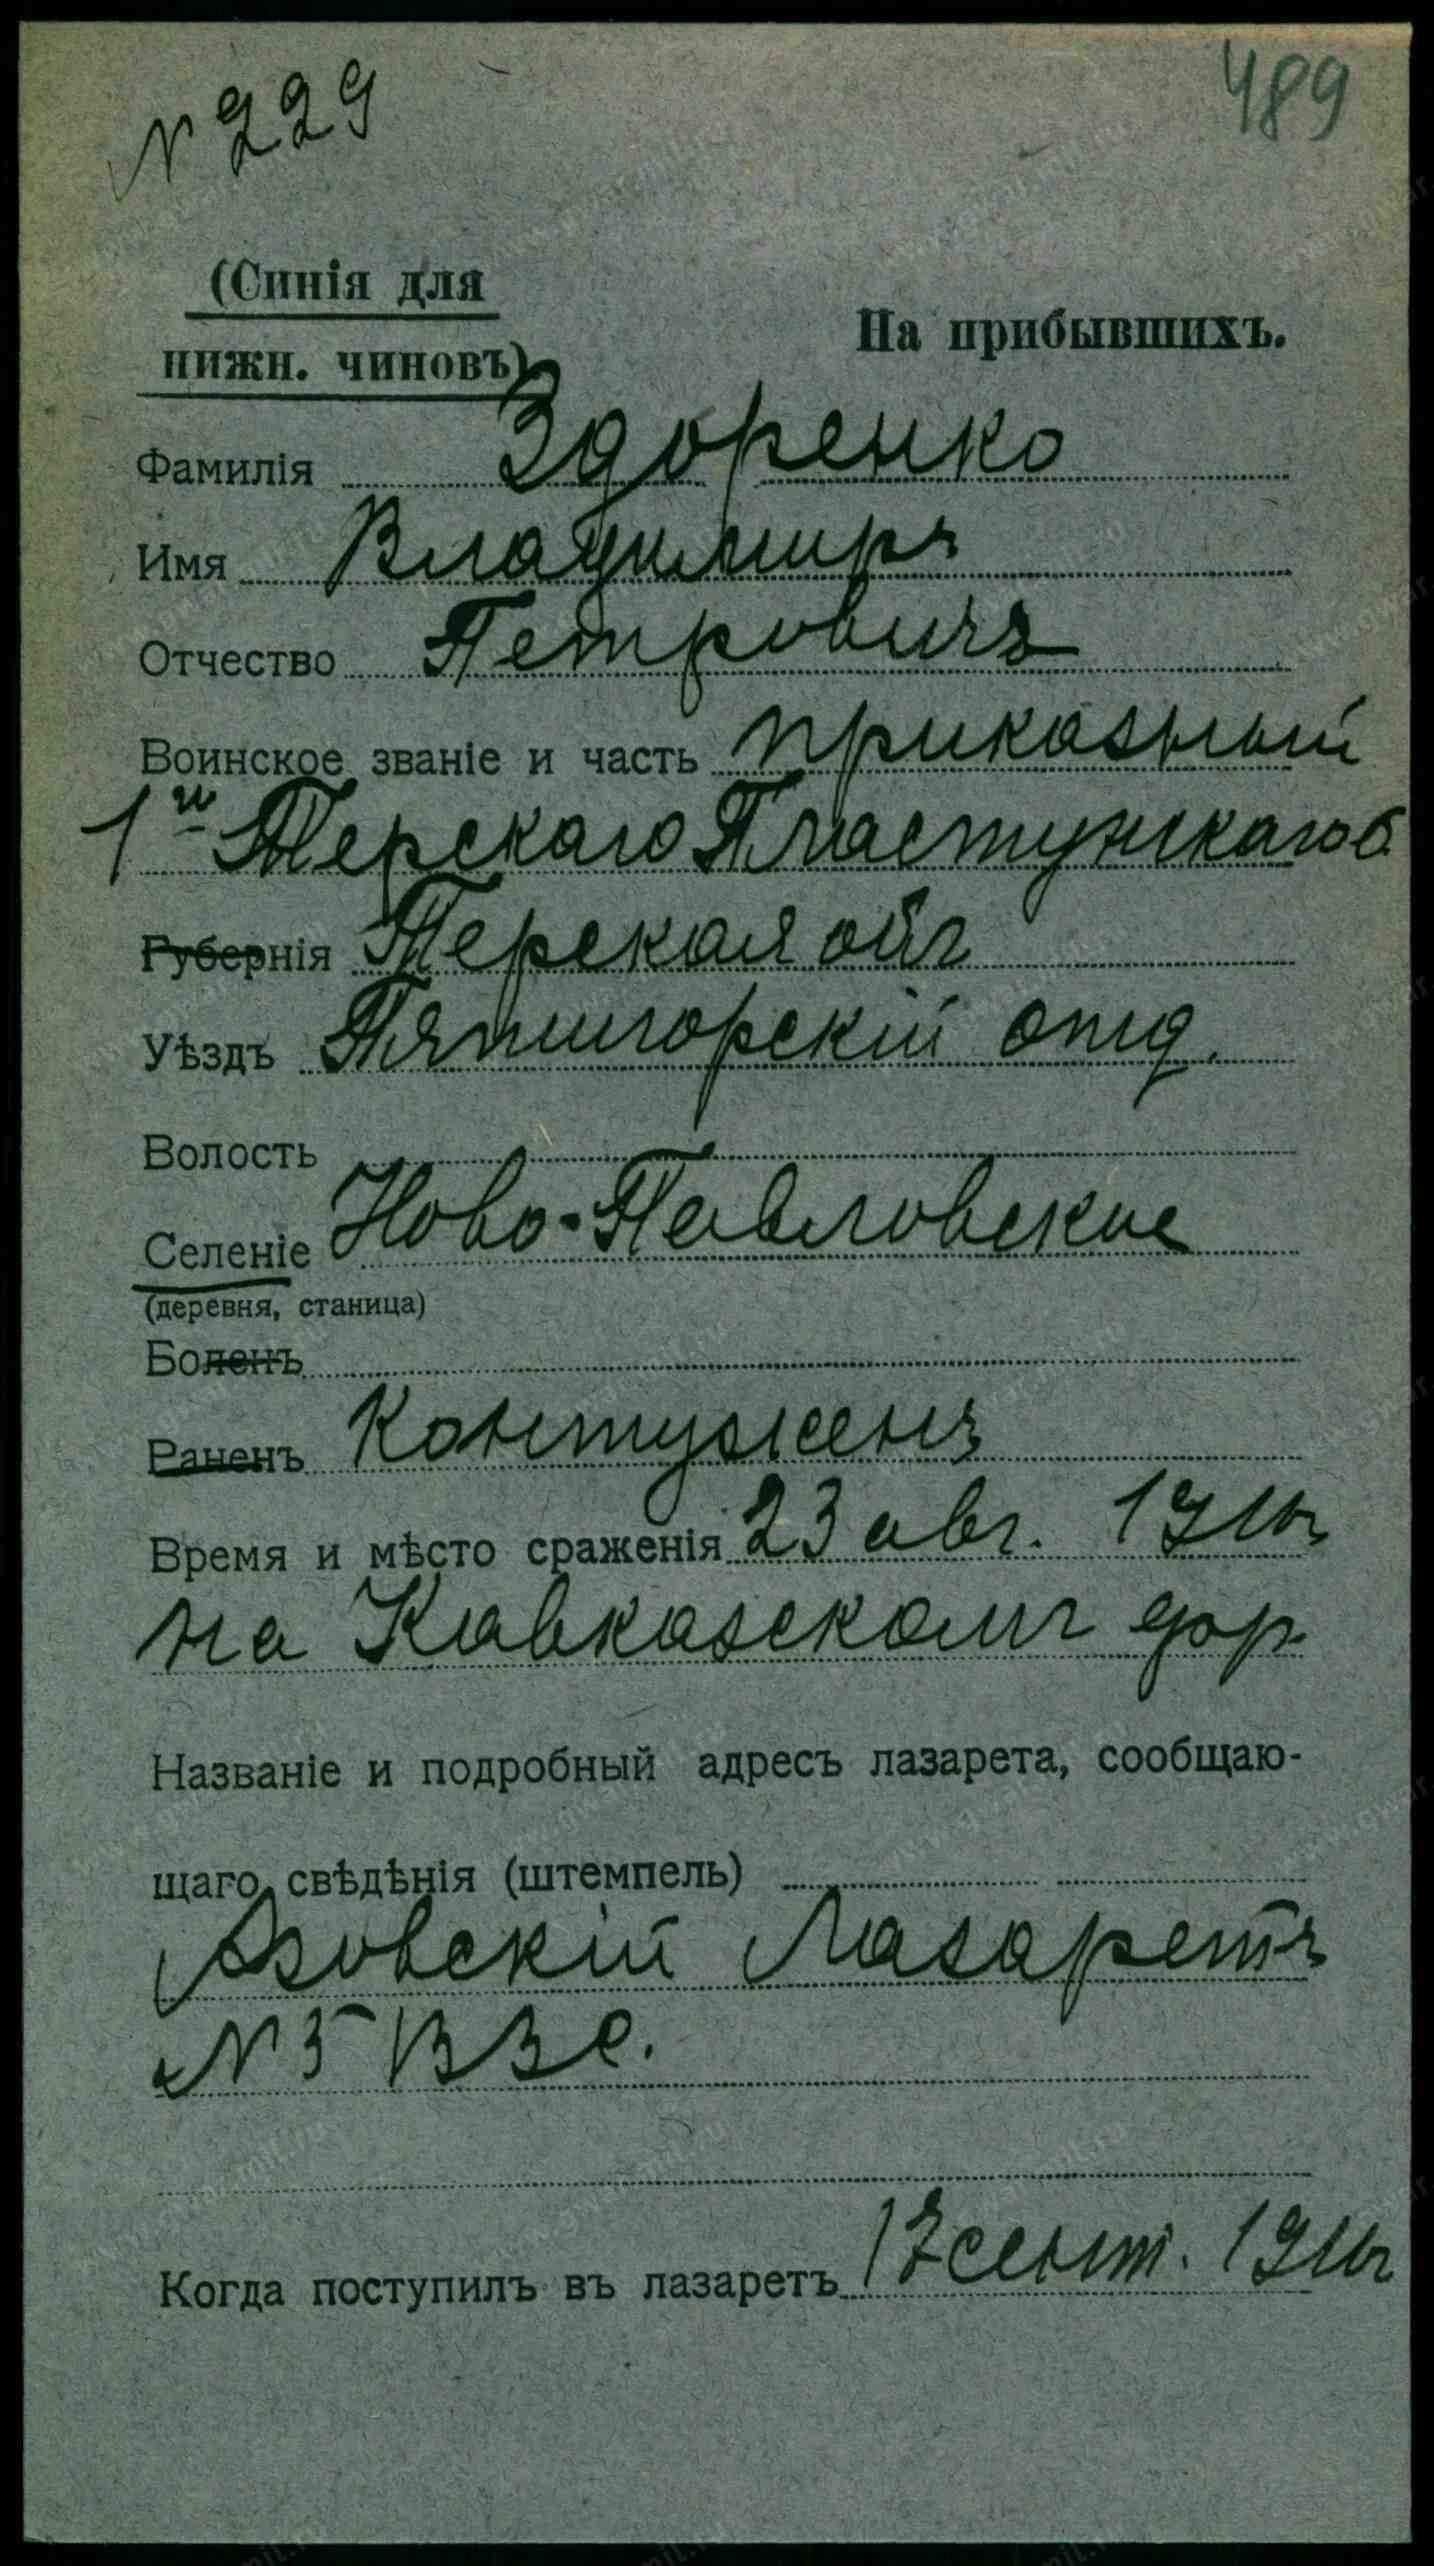 N 229
489
(Синія для
нижн. чиновъ)
На прибывшихъ.
Фамилія Здоренко
Имя Владимиръ
Отчество Петровичъ
Воинское званіе и часть приказный
1го Терскаго Пластунскаго б.
Губернія Терская обл
Уѣздъ Пятигорскій отд.
Волость
Селеніе Ново-Павловское
(деревня, станица)
Боленъ
Раненъ Контуженъ
Время и мѣсто сраженія 23 авг. 191
на Кавказскомъ фр.
Названіе и подробный адресъ лазарета, сообщаю-
щаго свѣдѣнія (штемпель)
Азовскій Лазаретъ
N 5 ВЗС.
Когда поступилъ въ лазаретъ 17 сент. 191